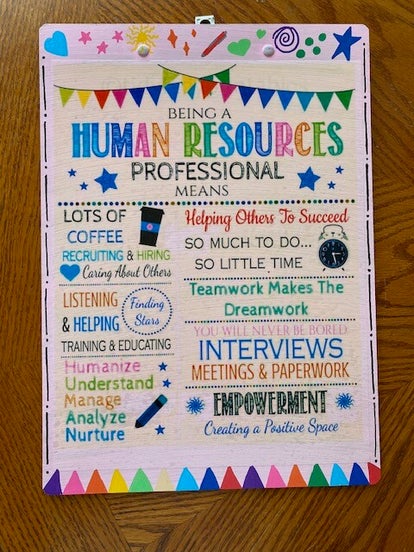 BEING A
HUMAN RESOURCES
PROFESSIONAL
MEANS
LOTS OF
COFFEE
RECRUITING & HIRING
Caring About Others
LISTENING
& HELPING
Finding
Stars
TRAINING & EDUCATING
Humanize
Understand
Manage
Analyze
Nurture
Helping Others To Succeed
SO MUCH TO DO...
SO LITTLE TIME
Teamwork Makes The
Dreamwork
YOU WILL NEVER BE BORED
INTERVIEWS
MEETINGS & PAPERWORK
EMPOWERMENT
Creating a Positive Space